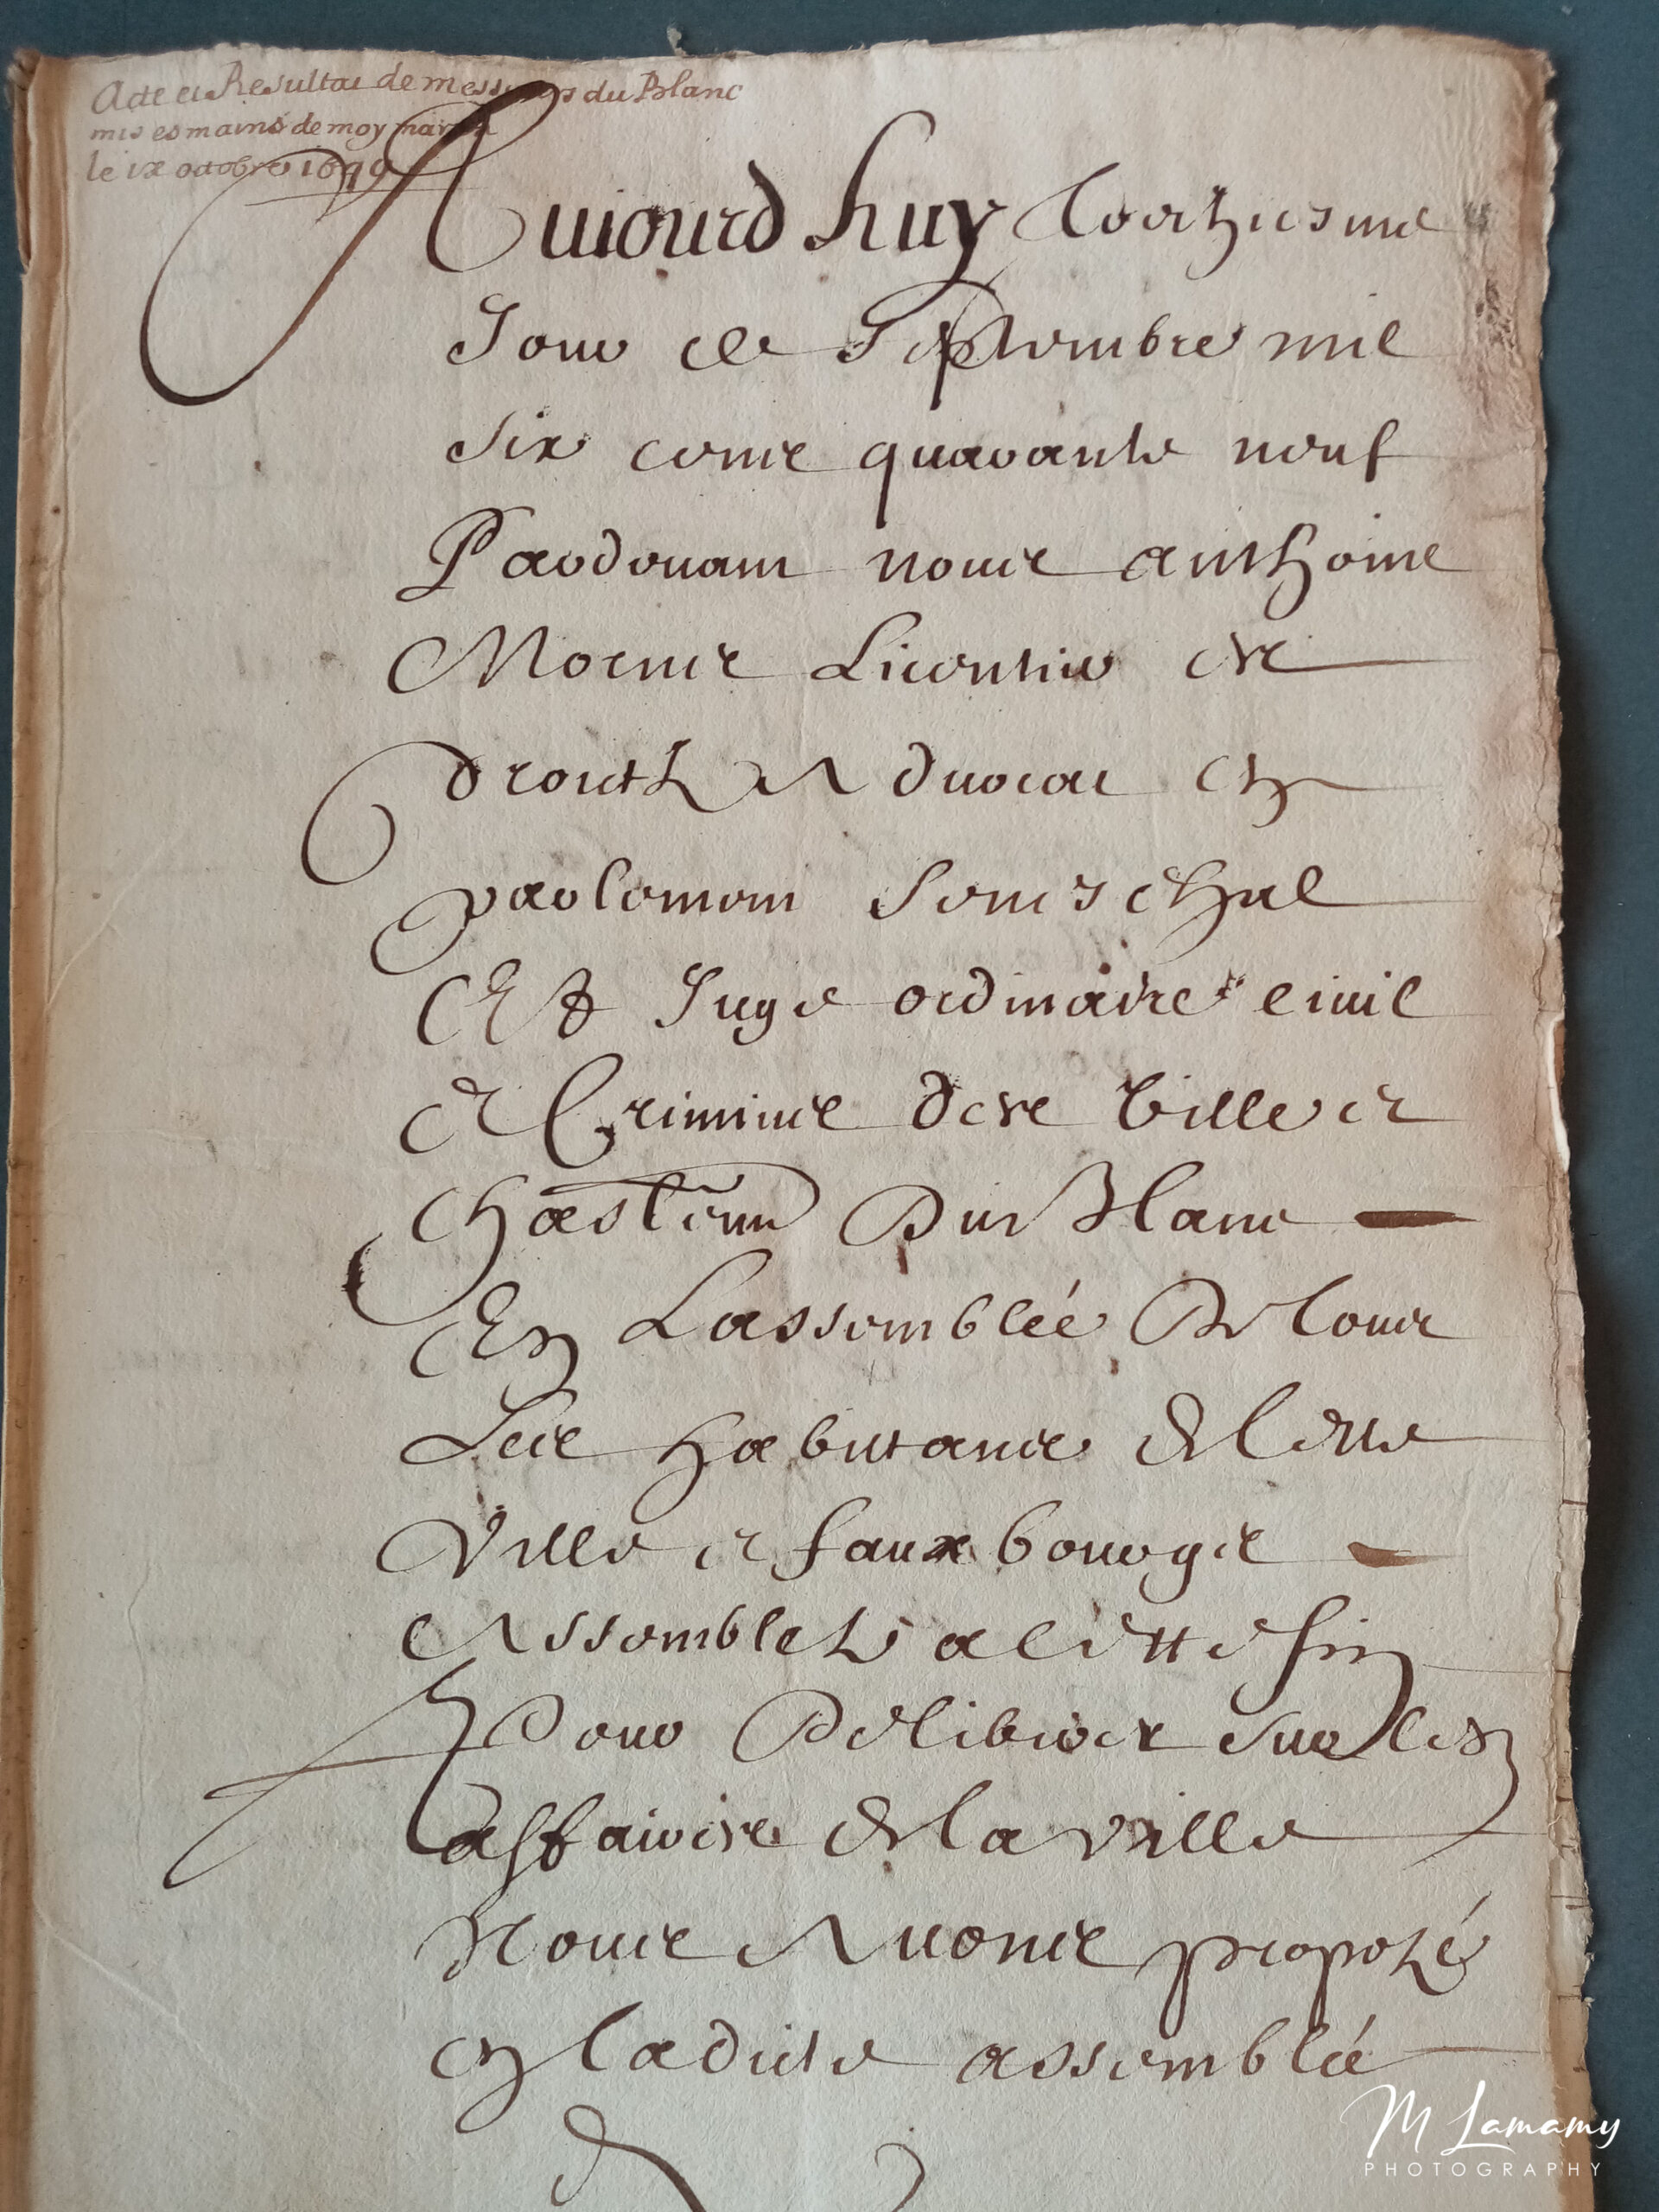 Acte et Resultat de messieurs du Blanc
mis es mains de moy
le ix octobre 1649
Aujourd huy
Jour de Septembre mil
six cens quarante neuf
Pardevant nous Anthoine
Licentie es
droicth Advocat en
parlement Seneschal
Et Juge ordinaire civil
et Criminel des ville et
Chastenie Du Blanc
En Lassemblée De tous
Les habittans de cette
Ville et faux bourgs
Assemblez a cette fin
Pour Deliberer sur les
affaires de la ville
Nous Avons propozé
en ladicte assemblée
M Lamamy
PHOTOGRAPHY